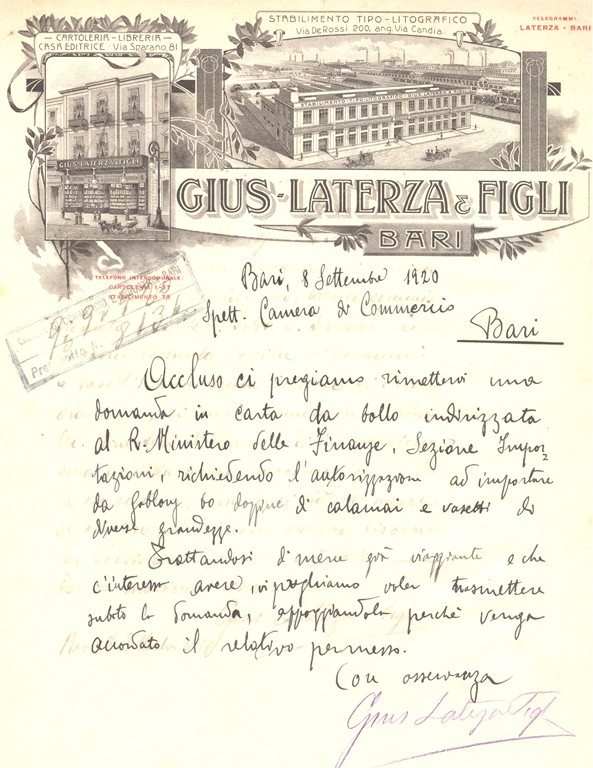 CARTOLERIA - LIBRERIA
CASA EDITRICE - Via Sparano, 81
STABILIMENTO TIPO-LITOGRAFICO
Via De Rossi 200, ang. Via Candia
TELEGRAMMI:
LATERZA - BARI
STABILIMENTO TIPO-LITOGRAFICO GIUS. LATERZA & FIGLI
GIUS. LATERZA & FIGLI
GIUS. LATERZA & FIGLI
BARI
TELEFONO INTERCOMUNALE:
CARTOLERIA 1-37
STABILIMENTO 78
Bari, 8 Settembre 1920
Spett. Camera di Commercio
Bari
Accluso ci pregiamo rimettervi una
domanda in carta da bollo indirizzata
al R. Ministero delle Finanze, Sezione Impor
tazioni, richiedendo l'autorizzazione ad importare
da Gablonz 60 dozzine di calamai e vasetti di
diverse grandezze.
Trattandosi di merce già viaggiante e che
c'interessa avere, vi preghiamo voler trasmettere
subito la domanda, appoggiandola perchè venga
accordato il relativo permesso.
Con osservanza
Gius Laterza & Figli